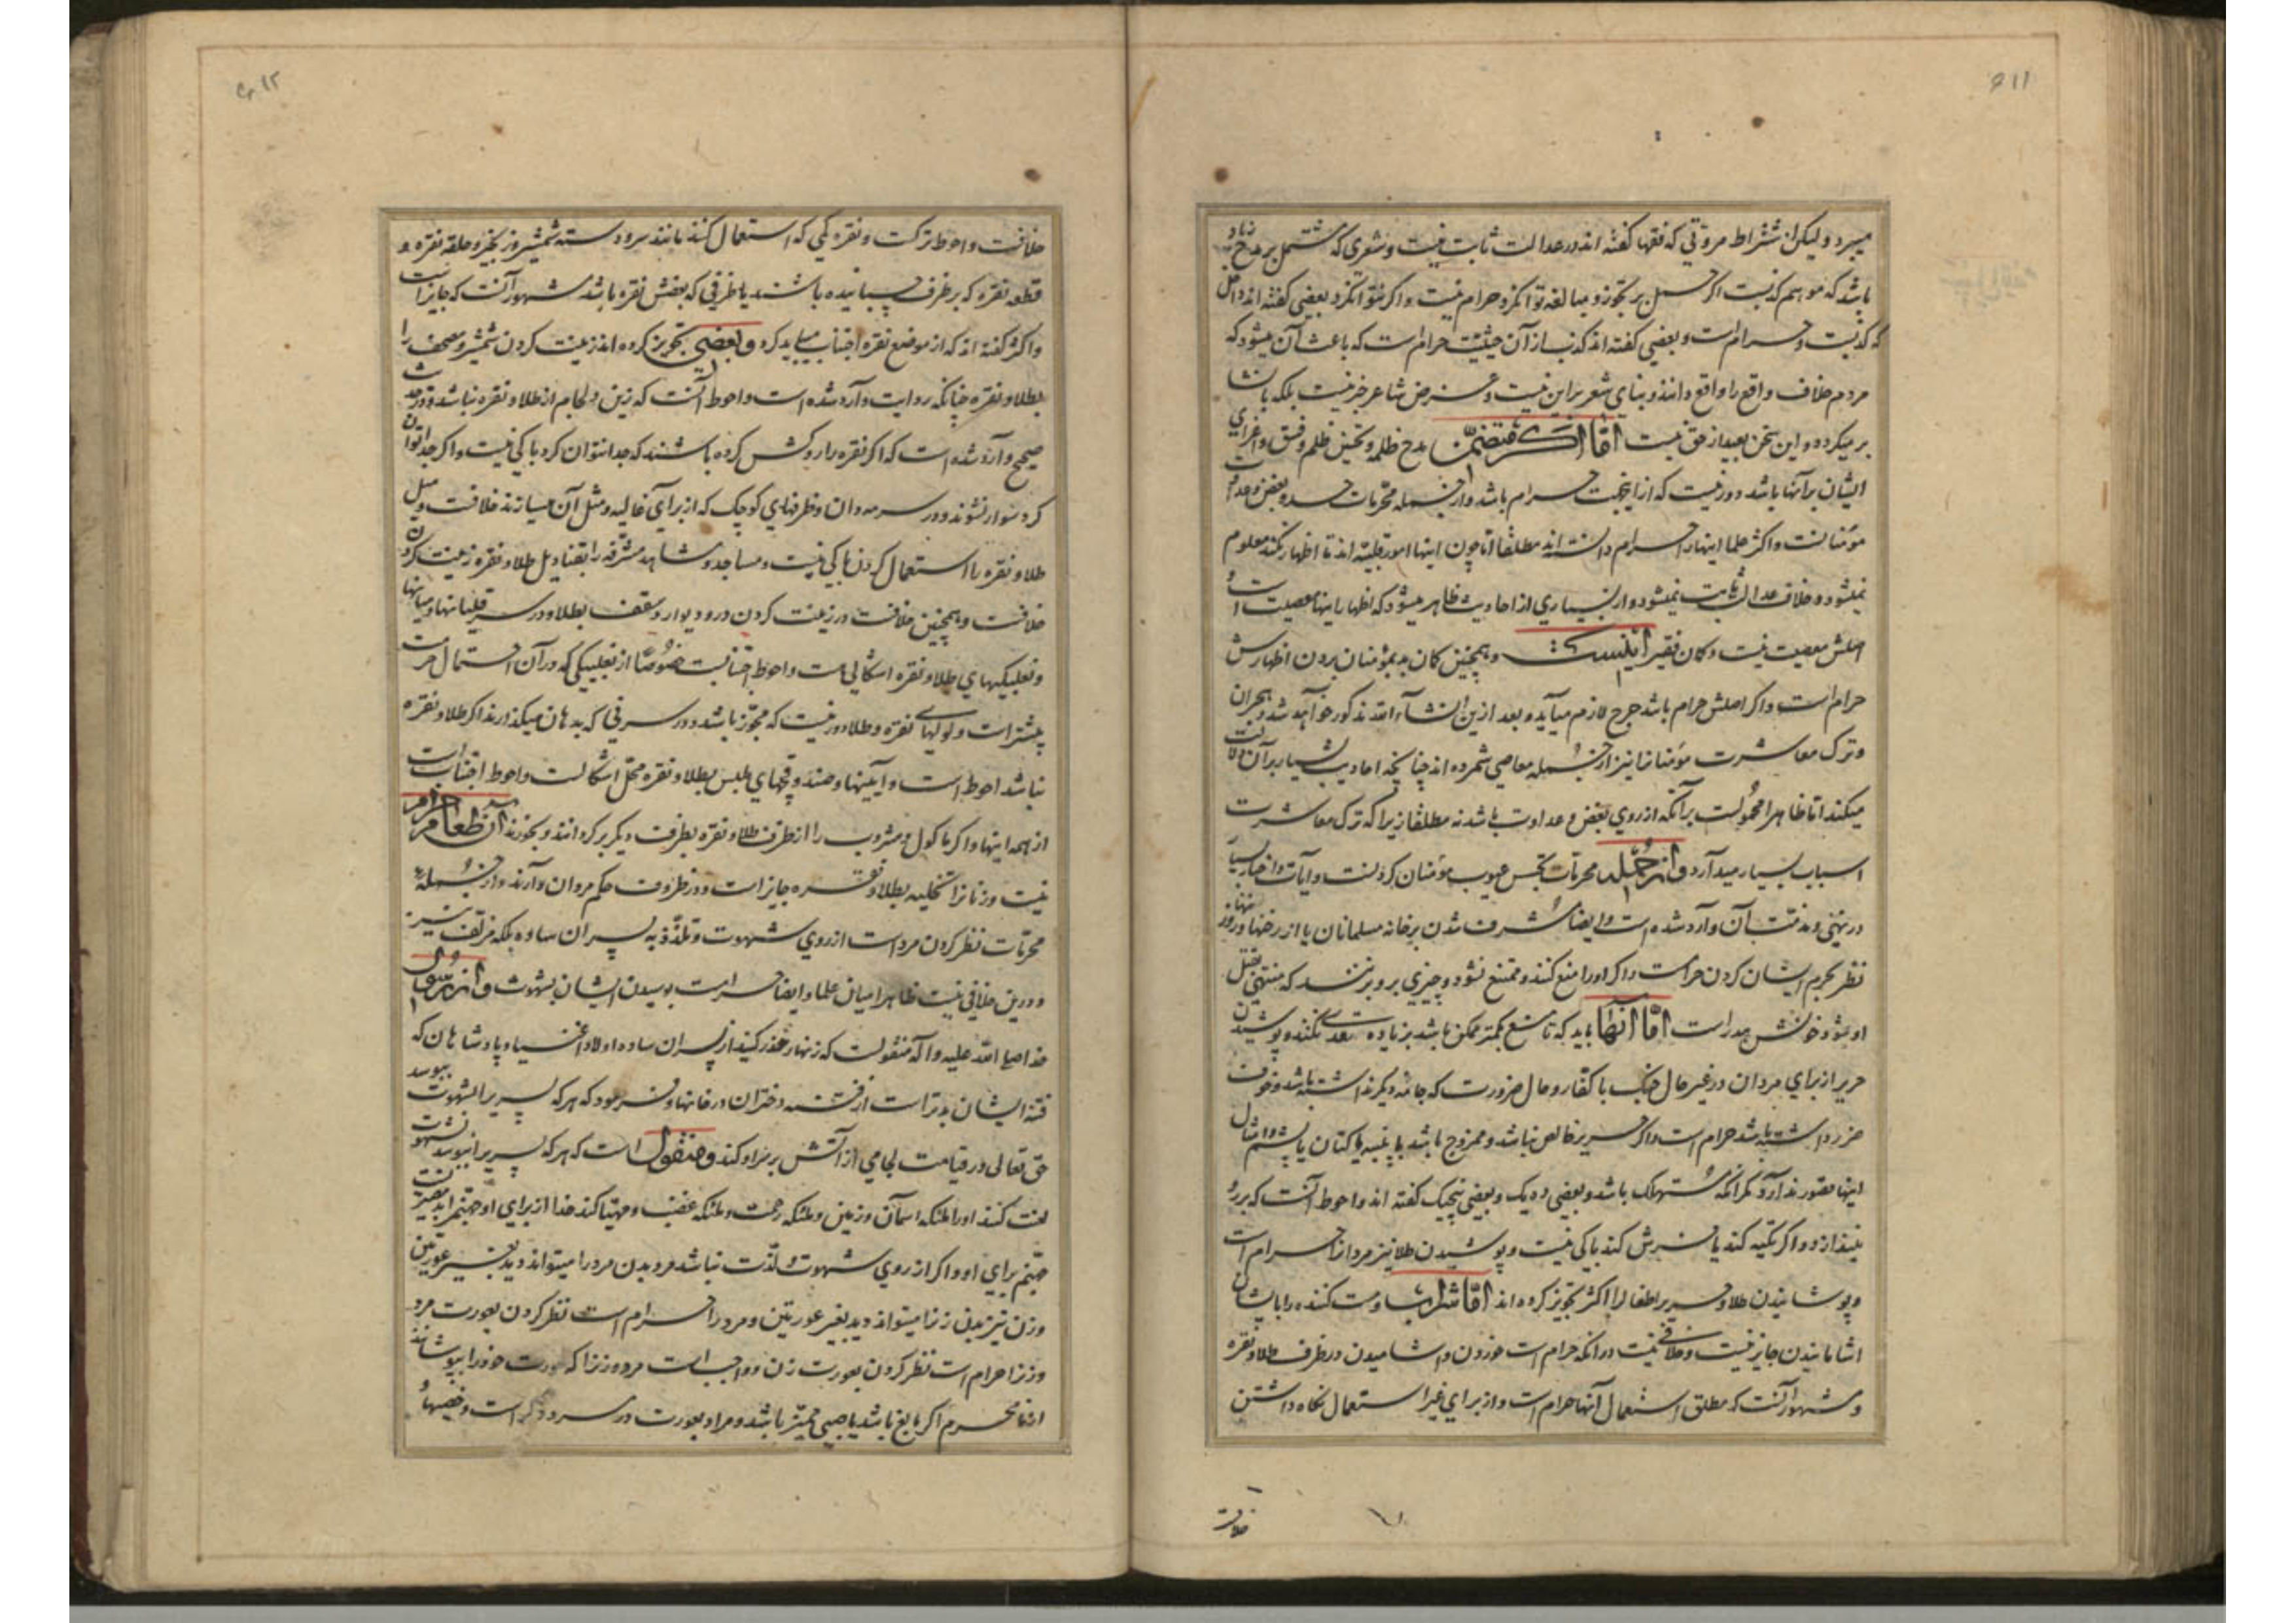 میبرد ولیکن اشتراط مروتی که فقها گفته اند در عدالت ثابت نیست و شعری که مشتمل بر مدح
باشد که موهم کذبست اگر حمل بر تجوز و مبالغه توان کرد حرام نیست و اگر نتوان کرد بعضی گفته اند داخل
که کذبست و حرام است و بعضی گفته اند کذب از آن حیثیت حرام است که باعث آن میشود که
مردم خلاف واقع را واقع دانند و بنای شعر بر این نیست و غرض شاعر خبر نیست بلکه بانشا
بر میگردد و این سخن بعید از حق نیست اما اگر متضمن مدح ظلمه و تحسین ظلم و فسق و اغرای
ایشان بر آنها باشد دور نیست که از اینجهت حرام باشد و از جمله محرمات حسد و بغض و عداوت
مؤمنانست و اکثر علما اینها را حرام دانسته اند مطلقا اما چون اینها امور قلبیه اند تا اظهار نکند معلوم
نمیشود و خلاف عدالت ثابت نمیشود و از بسیاری از احادیث ظاهر میشود که اظهار اینها معصیت است و
اصلش معصیت نیست و کان فقیر اینست و همچنین کمان بد بمؤمنان بردن اظهارش
حرام است و اگر اصلش حرام باشد حرج لازم میآید و بعد ازین انشاء الله مذکور خواهد شد و هجران
و ترک معاشرت مؤمنانرا نیز از جمله معاصی شمرده اند چنانچه احادیث بسیار بر آن دلالت
میکند اما ظاهرا محمولست بر آنکه از روی بغض و عداوت باشد نه مطلقا زیرا که ترک معاشرت
اسباب بسیار میدارد و از جمله محرمات تجسس عیوب مؤمنان کردنست و آیات و اخبار بسیار
در نهی و مذمت آن وارد شده است و ایضا مشرف شدن بر خانه مسلمانان یا از رخنها و روزنها
نظر بحرم ایشان کردن حرامست و اگر او را منع کنند و ممتنع نشود و چیزی بر او بزنند که منتهی بقتل
او شود خونش هدر است اما آنکه باید که تا منع بکمتر ممکن باشد بزیاده تعدی نکنند و پوشیدن
حریر از برای مردان در غیر حال جنگ با کفار و حال ضرورت که جامه دیگر نداشته باشد و خوف
ضرر داشته باشد حرام است و اگر حریر خالص نباشد و ممزوج باشد با پنبه یا کتان یا پشم و امثال
اینها قصور ندارد مگر آنکه مستهلک باشد و بعضی ده یک و بعضی پنجیک گفته اند و احوط آنست که بر رو
نیندازد و اگر تکیه کند یا فرش کند باکی نیست و پوشیدن طلا نیز مردانرا حرام است
و پوشانیدن طلا و حریر باطفال را اکثر تجویز کرده اند اما شراب و مست کننده را بایشان
اشامانیدن جایز نیست و خلافی نیست در آنکه حرام است خوردن و اشامیدن در ظرف طلا و نقره
و مشهور آنست که مطلق استعمال آنها حرام است و از برای غیر استعمال نگاه داشتن
خلافست
خلافست و احوط ترکست و نقره کمی که استعمال کنند مانند سر و دسته شمشیر و زنجیر و حلقه نقره و
قطعه نقره که بر ظرف چسبانیده باشند یا ظرفی که بعضش نقره باشد مشهور آنست که جایز است
و اکثر گفته اند که از موضع نقره اجتناب میباید کرد و بعضی تجویز کرده اند زینت کردن شمشیر و مصحف را
بطلا و نقره چنانکه روایت وارد شده است و احوط آنست که زین و لجام از طلا و نقره نباشد و در حدیث
صحیح وارد شده است که اگر نقره را روکش کرده باشند که جدا نتوان کرد باکی نیست و اگر جدا توان
کرد سوار نشوند و در سرمه دان و ظرفهای کوچک که از برای غالیه و مثل آن میسازند خلافست و میل
طلا و نقره را استعمال کردن باکی نیست و مساجد و مشاهد مشرفه را بقنادیل طلا و نقره زینت کردن
خلافست و همچنین خلافست در زینت کردن در و دیوار و سقف بطلا و در سر قلیانها و میانها
و نعلبیکیهای طلا و نقره اشکالی هست و احوط اجتنابست خصوصا از نعلبیکی که در آن احتمال حرمت
بیشتر است و لولهای نقره و طلا دور نیست که مجوز باشد و در سرفی که بدهان میگذارند اگر طلا و نقره
نباشد احوط است و آیینها و صندوقچهای ملبس بطلا و نقره محل اشکالست و احوط اجتناب است
از همه اینها و اگر ماکول و مشروب را از ظرف طلا و نقره بظرف دیگر بر گردانند و بخورند آن طعام حرام
نیست و زنانرا تحلیه بطلا و نقره جایز است و در ظروف حکم مردان دارند و از جمله
محرمات نظر کردن مرد است از روی شهوت و تلذذ به پسران ساده بلکه مزلف نیز
و درین خلافی نیست ظاهرا میان علما و ایضا حرامست بوسیدن ایشان بشهوت و از رسول
خدا صلی الله علیه و آله منقولست که زنهار حذر کنید از پسران ساده اولاد اغنیا و پادشاهان که
فتنه ایشان بدتر است از فتنه دختران در خانها و فرمود که هر که پسریرا بشهوت ببوسد
حق تعالی در قیامت لجامی از آتش بر سر او کند و منقول است که هر که پسریرا ببوسد بشهوت
لعنت کنند او را ملئکه اسمان و زمین و ملئکه رحمت و ملئکه غضب و مهیا کند خدا از برای او جهنم را و بد مصیریست
جهنم برای او و اگر از روی شهوت و لذت نباشد مرد بدن مرد را میتواند دید بغیر عورتین
و زن نیز بدن زنرا میتواند دید بغیر عورتین و مرد را حرام است نظر کردن بعورت مرد
و زنرا حرام است نظر کردن بعورت زن و واجب است مرد و زنرا که عورت خود را بپوشانند
از نا محرم اگر بالغ باشد یا صبی ممیز باشد و مراد بعورت در مرد ذکر است و خصیها و